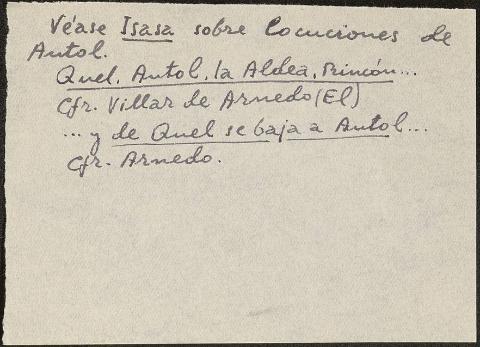 Véase Isasa sobre locuciones de
Autol.
Quel, Autol, la Aldea, Rincón...
Cfr. Villar de Arnedo (El)
... y de Quel se baja a Autol...
Cfr. Arnedo.